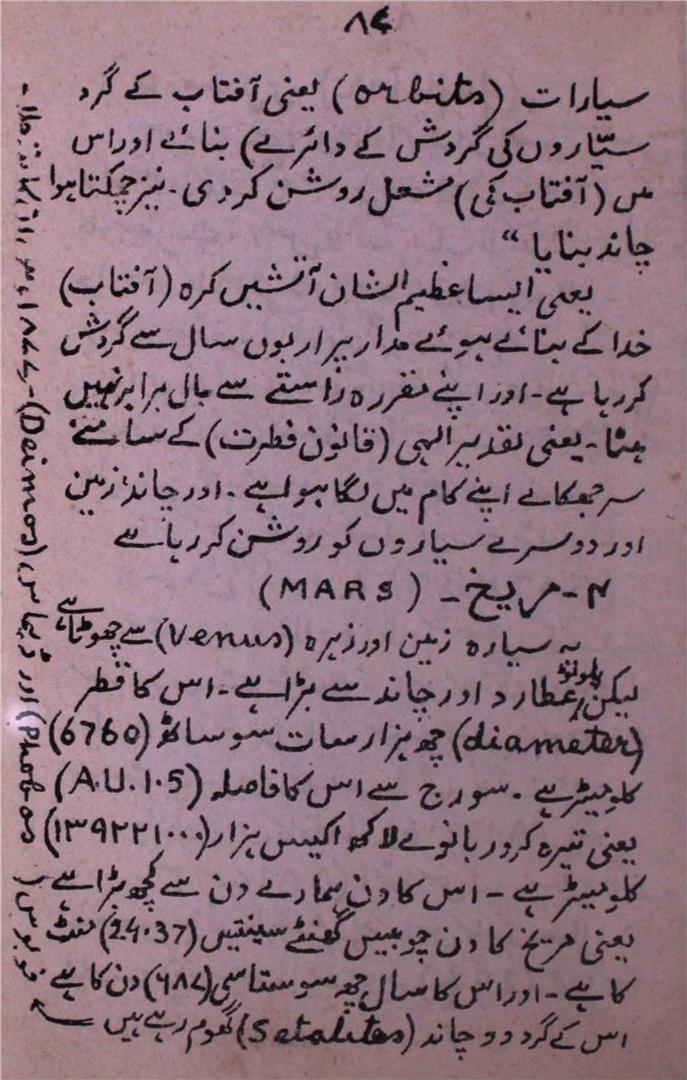 ۸۴
سیارات (orbits) یعنی آفتاب کے گرد
سیّاروں کی گردش کے دائرے) بنائے اور اس
میں (آفتاب کی) مشعل روشن کر دی۔ نیز چمکتا ہوا
چاند بنایا “
یعنی ایسا عظیم الشان آتشیں کرہ (آفتاب)
خدا کے بنائے ہوئے مدار پر اربوں سال سے گردش
کر رہا ہے۔ اور اپنے مقررہ راستے سے بال برابر نہیں
ہٹتا۔ یعنی تقدیر الٰہی (قانون فطرت) کے سامنے
سر جھکائے اپنے کام میں لگا ہوا ہے۔ اور چاند، زمین
اور دوسرے سیاروں کو روشن کر رہا ہے
۴۔ مریخ۔ (MARS)
یہ سیارہ زمین اور زہرہ (Venus) سے چھوٹا ہے
لیکن پلوٹو، عطارد اور چاند سے بڑا ہے۔ اس کا قطر
(diameter) چھ ہزار سات سو ساٹھ (6760)
کلومیٹر ہے۔ سورج سے اس کا فاصلہ (A.U.1.5)
یعنی تیرہ کرور بانوے لاکھ اکیس ہزار (۱۳۹۲۲۱۰۰۰)
کلومیٹر ہے۔ اس کا دن ہمارے دن سے کچھ بڑا ہے
یعنی مریخ کا دن چوبیس گھنٹے سینتیس (24.37) منٹ
کا ہے۔ اور اس کا سال چھ سو ستاسی (۶۸۷) دن کا ہے
اس کے گرد دو چاند (Setalites) گھوم رہے ہیں
فوبوس (Phobos) اور ڈیماس (Deimos)۔ ۱۸۷۷ء میں ان کا پتہ چلا۔